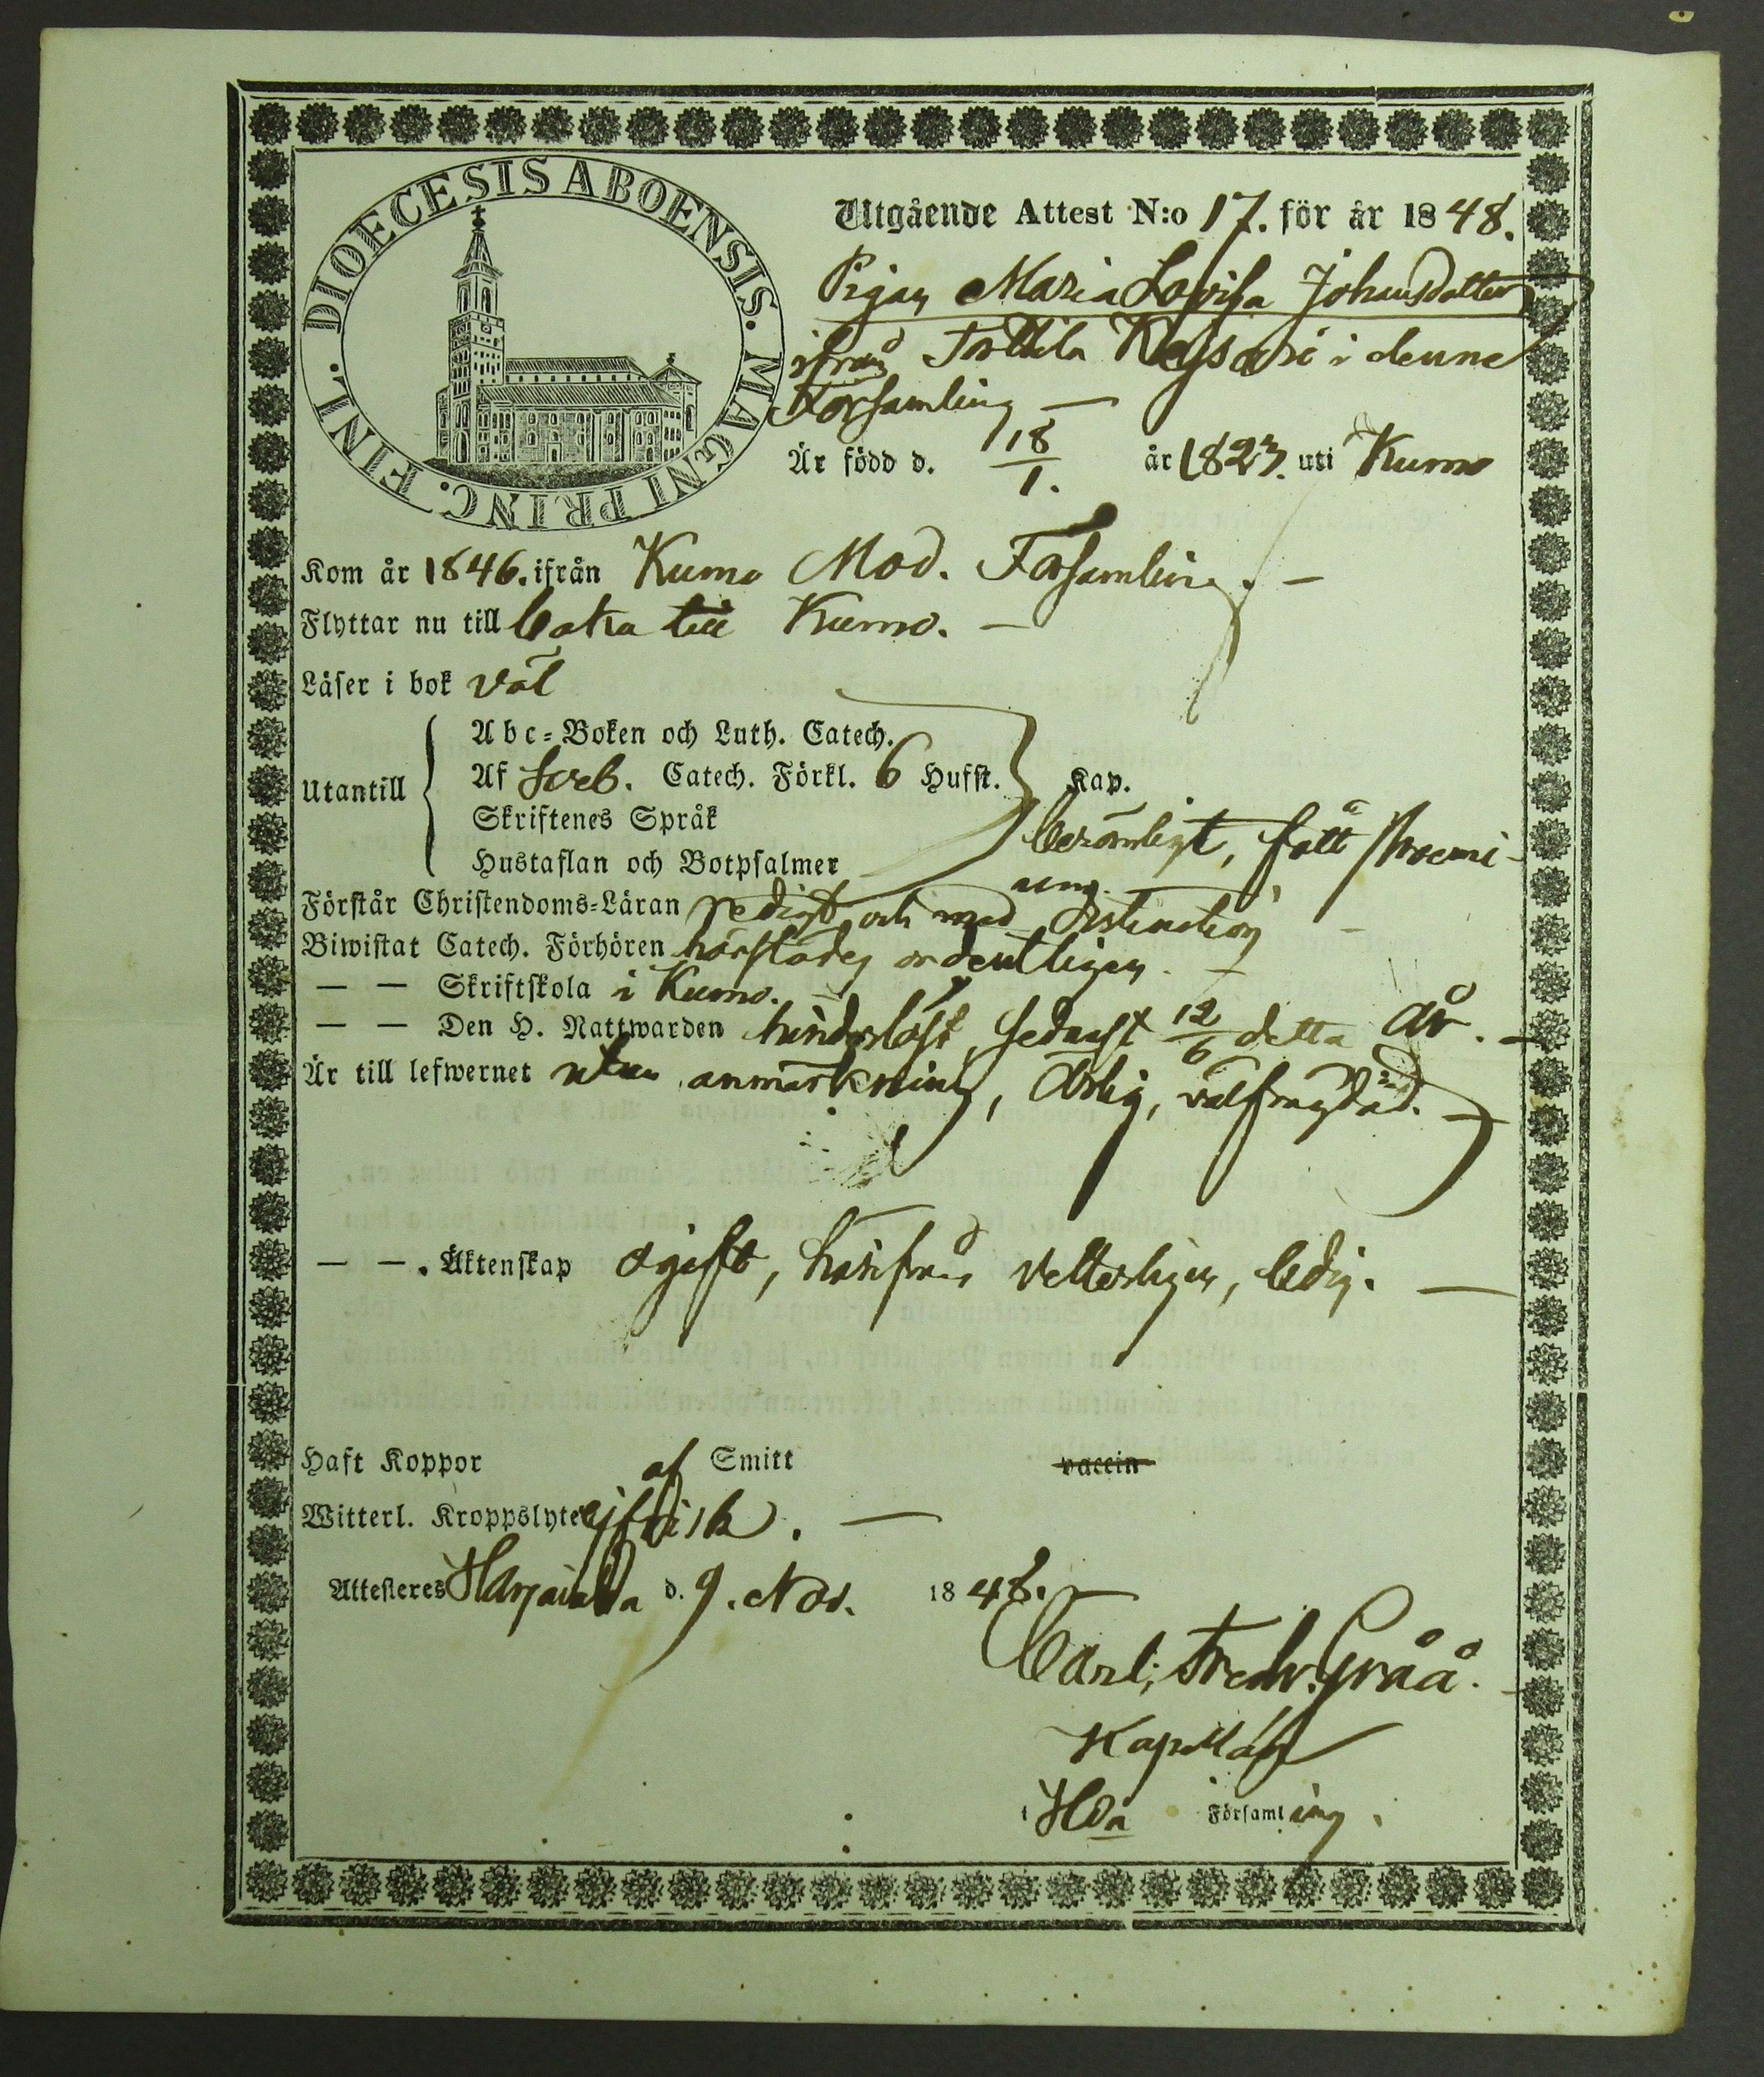 DIOECESIS ABOENSIS. MAGNI PRINC. FINL.
Utgående Attest N:o 17. för år 1848.
Pigan Maria Lovisa Johansdotter
ifrån Torttila Keysari i denna
Församling —
Är född d. 18/1. år 1823. uti Kumo
Kom år 1846. ifrån Kumo Mod. Församling. —
Flyttar nu till baka till Kumo. —
Läser i bok väl
Utantill
Abc-Boken och Luth. Catech.
Af Sveb. Catech. Förkl. 6 Hufst. Kap.
Skriftenes Språk
Hustaflan och Botpsalmer
berömligt, fått Praemi-
um.
Förstår Christendoms-Läran redigt och med distinction —
Biwistat Catech. Förhören härstädes ordentligen. —
— — Skriftskola i Kumo. —
— — Den H. Nattwarden hinderlöst, sednast 12/6 detta år. —
Är till lefwernet utan anmärkning, ärlig, välfrägdad. —
— — . Äktenskap ogift, härifrån vetterligen, ledig. —
Haft Koppor af Smitt vaccin
Witterl. Kroppslyte ej frisk. —
Attesteres Harjavalda d. 9. Nov. 1848. —
Carl. Fredr. Gråå.
Kapellan
i Hda Församling.